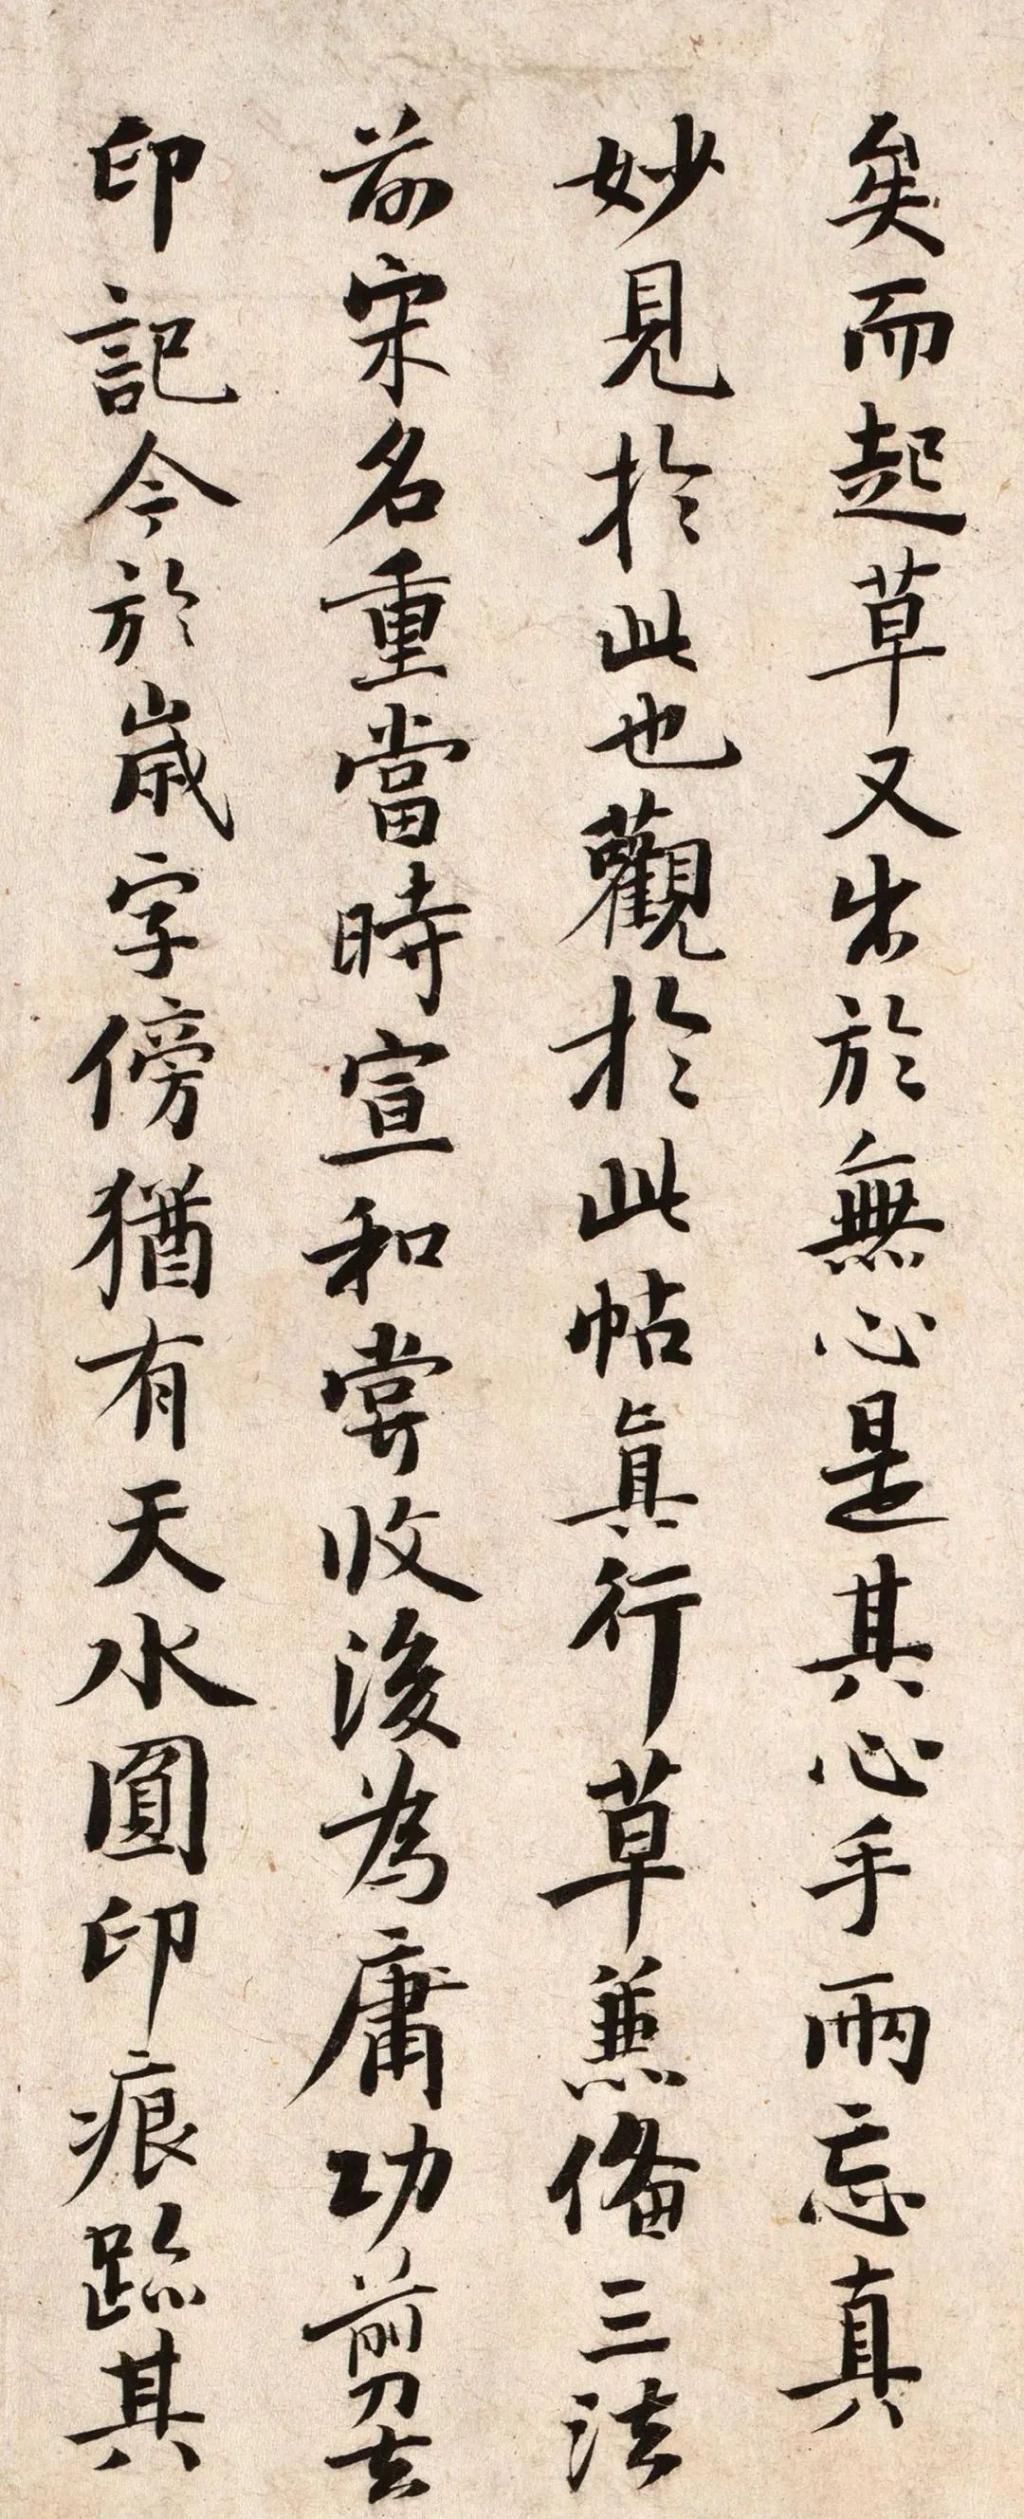 矣而起草又出於無心是其心手兩忘真
妙見於此也觀於此帖真行草蕪備三法
前宋名重當時宣和嘗收後為庸功剪去
印記今於歲字傍猶有天水圓印痕跡其